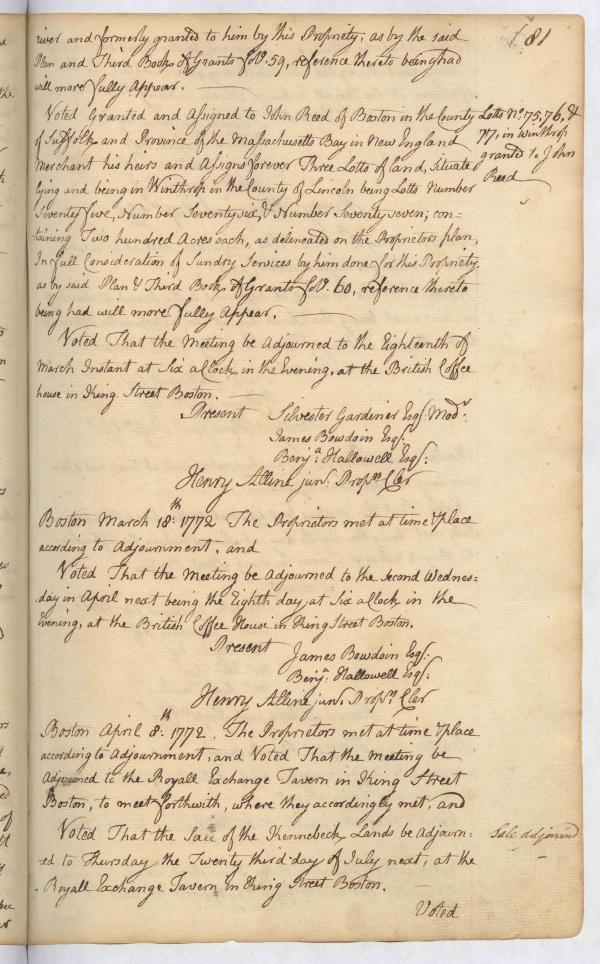 81
river and formerly granted to him by this Propriety; as by the said
Plan and Third Book of Grants fol. 59, reference thereto being had
will more fully Appear. —
Voted Granted and Assigned to John Reed of Boston in the County
of Suffolk and Province of the Massachusetts Bay in New England
Merchant his heirs and Assigns forever Three Lotts of land, situate
lying and being in Winthrop in the County of Lincoln being Lotts Number
Seventy five, Number Seventy six, & Number Seventy seven; con=
taining Two hundred Acres each, as delineated on the Proprietors plan,
In full Consideration of Sundry Services by him done for this Propriety.
as by said Plan & Third Book of Grants fol. 60, reference thereto
being had will more fully Appear. —
Lotts No. 75, 76, &
77, in Winthrop
granted to John
Reed
Voted That the Meeting be Adjourned to the Eighteenth of
March Instant at Six a Clock in the Evening, at the British Coffee
house in King Street Boston. —
Present Silvester Gardiner Esqr. Modr.
James Bowdoin Esqr.
Benja. Hallowell Esqr:
Henry Alline junr. Proprs. Cler
Boston March 18th: 1772 The Proprietors met at time & place
according to Adjournment, and
Voted That the Meeting be Adjourned to the Second Wednes=
day in April next being the Eighth day, at Six a Clock in the
Evening, at the British Coffee House in King Street Boston.
Present James Bowdoin Esqr:
Benja. Hallowell Esqr:
Henry Alline junr. Proprs. Cler
Boston April 8th: 1772. The Proprietors met at time & place
according to Adjournment, and Voted That the Meeting be
Adjourned to the Royall Exchange Tavern in King Street
Boston, to meet forthwith, where they accordingly met, and
Voted That the Sale of the Kennebeck Lands be Adjourn=
=ed to Thursday the Twenty third day of July next, at the
Royall Exchange Tavern in King Street Boston. —
Sale adjournd
Voted